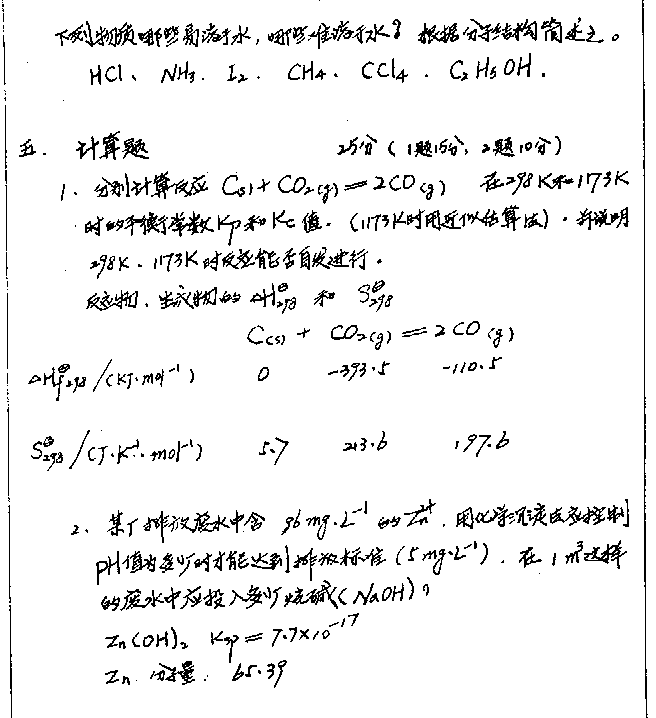 下列物质哪些易溶于水，哪些难溶于水？根据分子结构简述之。
HCl、NH3、I2、CH4、CCl4、C2H5OH.
五. 计算题 25分（1题15分，2题10分）
1、分别计算反应 C(s) + CO2(g) = 2CO(g) 在298K和1173K
时的平衡常数Kp和Kc值。（1173K时用近似估算法）。并说明
298K、1173K时反应能否自发进行。
反应物、生成物的 ΔH⊖298 和 S⊖298
C(s) + CO2(g) = 2CO(g)
ΔHf⊖298/(KJ·mol⁻¹) 0 -393.5 -110.5
S⊖298/(J·K⁻¹·mol⁻¹) 5.7 213.6 197.6
2、某厂排放废水中含 96mg·L⁻¹ 的Zn²⁺，用化学沉淀反应控制
PH值为多少时才能达到排放标准（5mg·L⁻¹）. 在1m³这样
的废水中应投入多少烧碱（NaOH）？
Zn(OH)2 Ksp = 7.7×10⁻¹⁷
Zn 分子量. 65.39